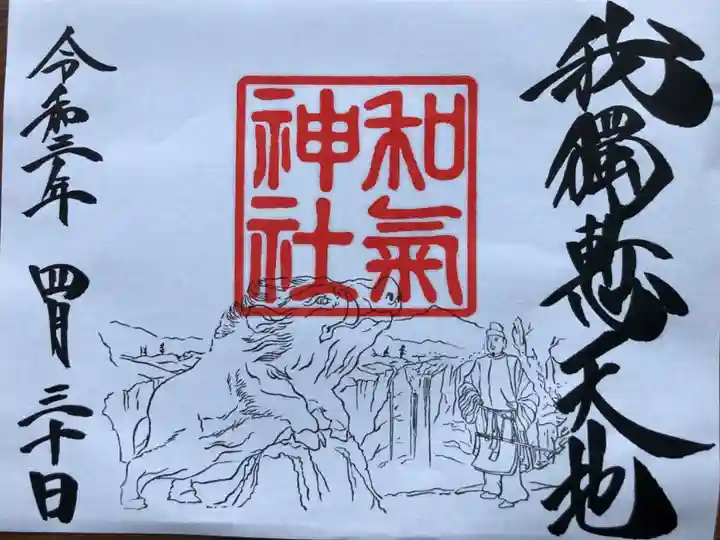 我獨慙天地
和氣
神社
令和三年 四月 三十日